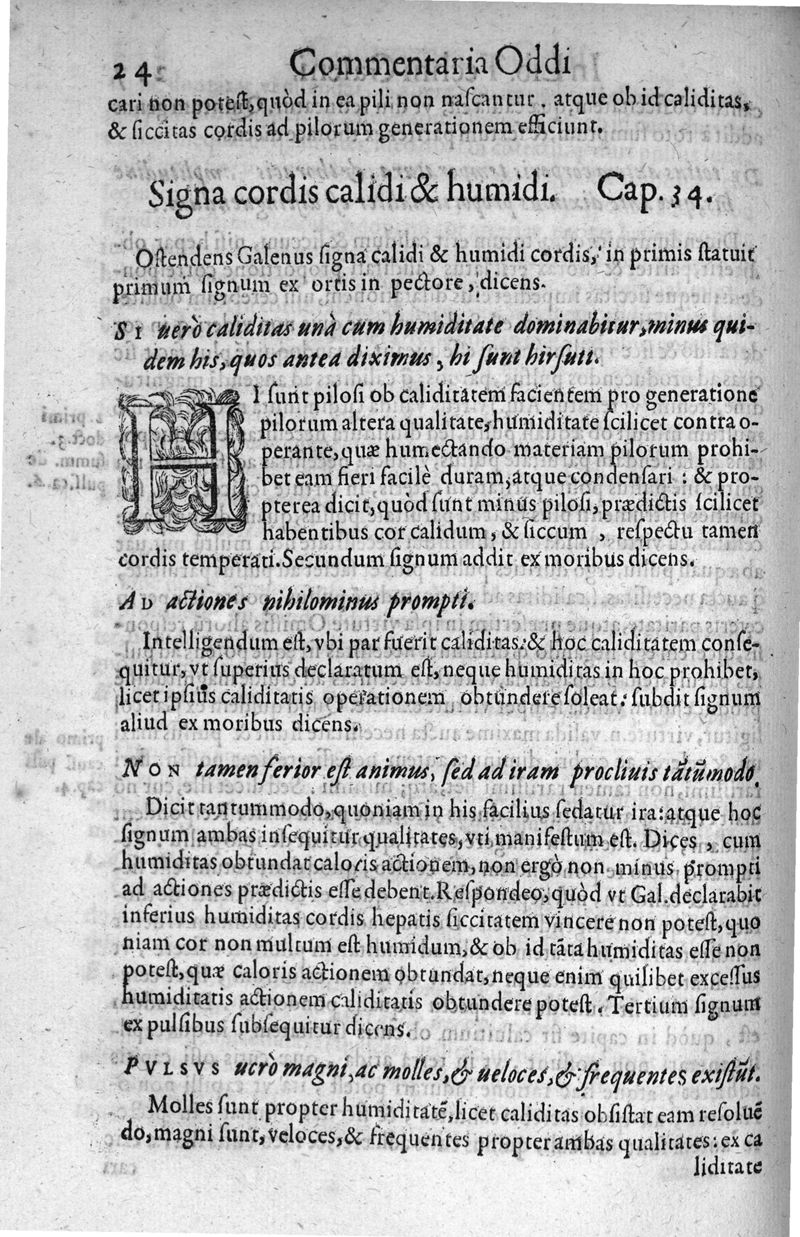 24 Commentaria Oddi
cari non potest, quòd in ea pili non nascantur. atque ob id caliditas,
& siccitas cordis ad pilorum generationem efficiunt.
Signa cordis calidi & humidi. Cap. 34.
Ostendens Galenus signa calidi & humidi cordis, in primis statuit
primum signum ex ortis in pectore, dicens.
SI uerò caliditas unà cum humiditate dominabitur, minus qui-
dem his, quos antea diximus, hi sunt hirsuti.
HI sunt pilosi ob caliditatem facientem pro generatione
pilorum altera qualitate, humiditate scilicet contra o-
perante, quæ humectando materiam pilorum prohi-
bet eam fieri facilè duram, atque condensari: & pro-
pterea dicit, quòd sunt minùs pilosi, prædictis scilicet
habentibus cor calidum, & siccum, respectu tamen
cordis temperati. Secundum signum addit ex moribus dicens.
AD actiones nihilominus prompti.
Intelligendum est, vbi par fuerit caliditas: & hoc caliditatem conse-
quitur, vt superius declaratum est, neque humiditas in hoc prohibet,
licet ipsius caliditatis operationem obtundere soleat: subdit signum
aliud ex moribus dicens.
NON tamen ferior est animus, sed ad iram procliuis tãtũmodo.
Dicit tantummodo, quoniam in his facilius sedatur ira: atque hoc
signum ambas insequitur qualitates, vti manifestum est. Dices, cum
humiditas obtundat caloris actionem, non ergò non minus prompti
ad actiones prædictis esse debent. Respondeo, quòd vt Gal. declarabit
inferius humiditas cordis hepatis siccitatem vincere non potest, quo
niam cor non multum est humidum, & ob id tãta humiditas esse non
potest, quæ caloris actionem obtundat, neque enim quilibet excessus
humiditatis actionem caliditatis obtundere potest. Tertium signum
ex pulsibus subsequitur dicens.
PVLSVS uerò magni, ac molles, & ueloces, & frequentes existũt.
Molles sunt propter humiditatẽ, licet caliditas obsistat eam resoluẽ
do, magni sunt, veloces, & frequentes propter ambas qualitates: ex ca
liditate